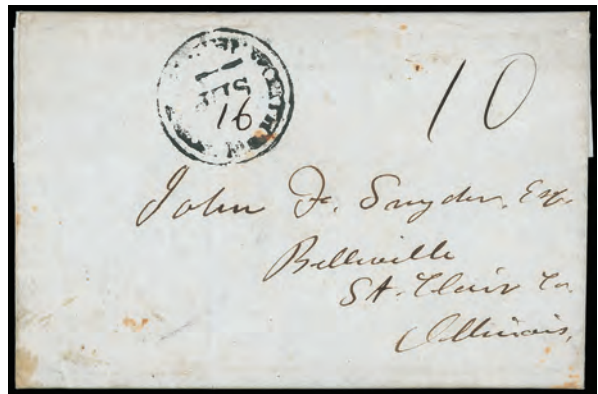 10
SEP
16
John F. Snyder, Esq.
Belleville
St. Clair Co.
Illinois.